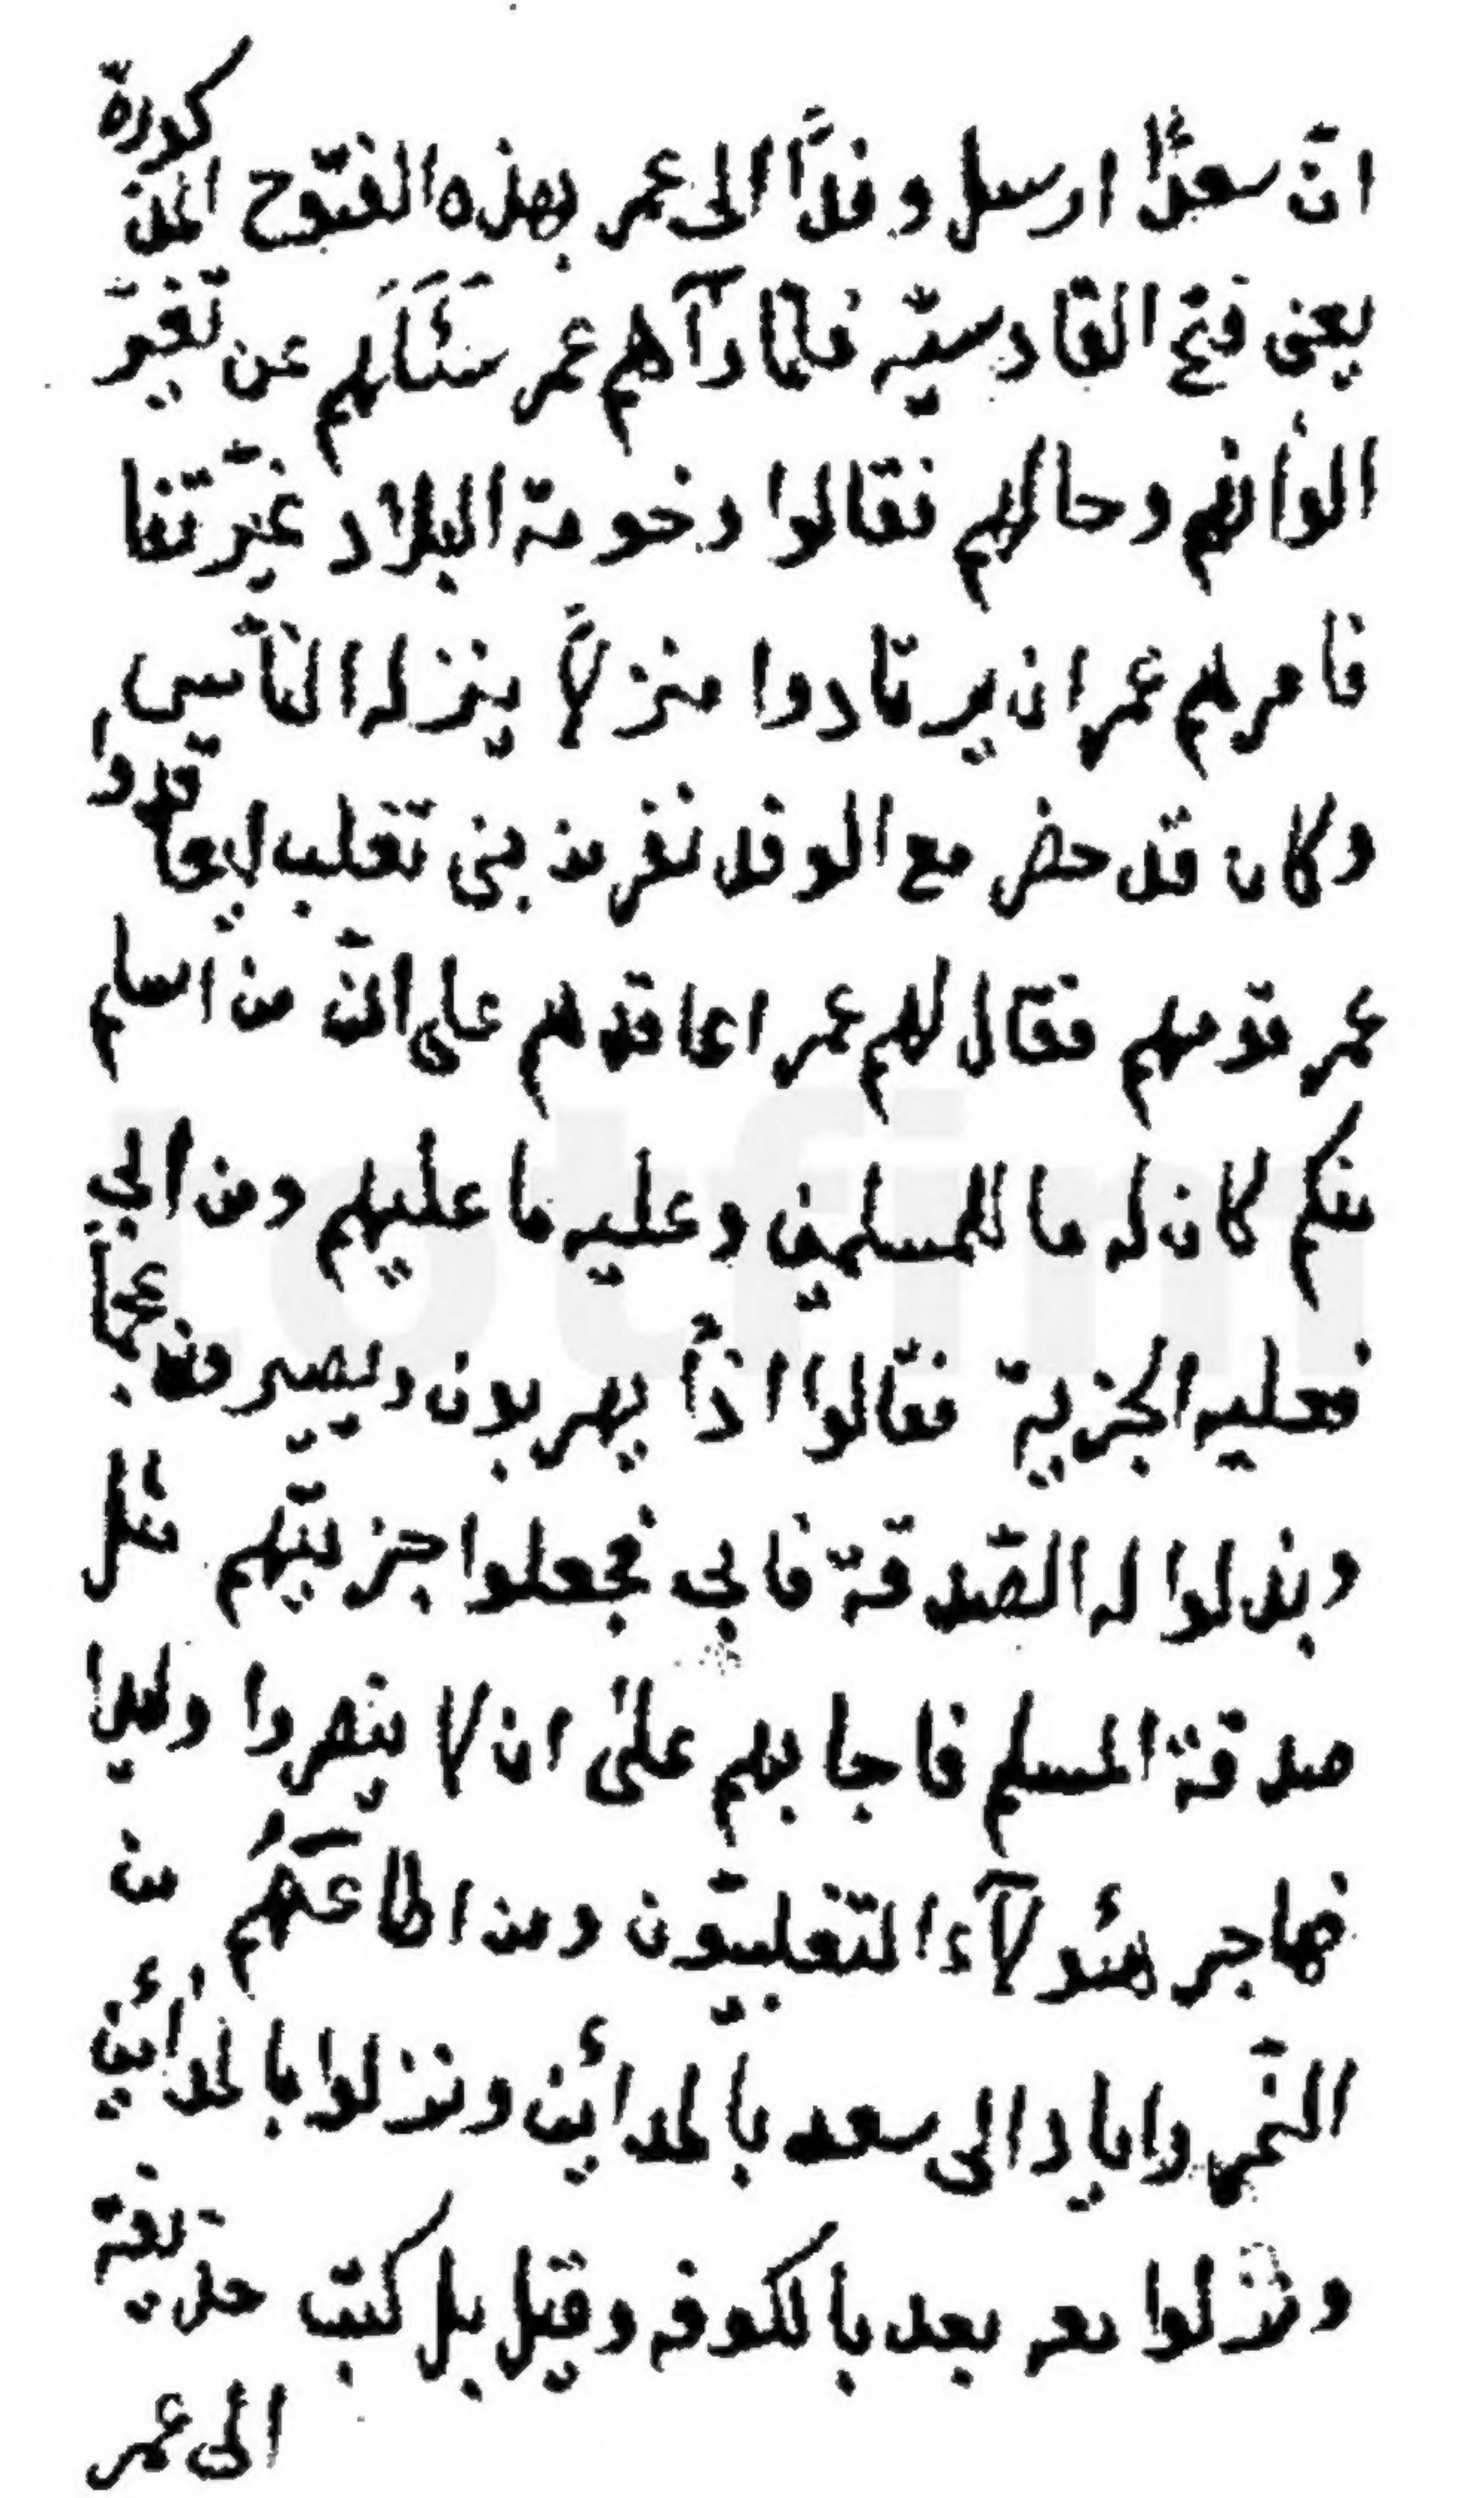 انّ سعدًا ارسل وفدًا الى عمر بهذه الفتوح المذكورة
يعنى فتح القادسيّه فلمّا رآهم عمر سَئَلَهم عن تغيّر
الوانهم وحالهم فقالوا وخومة البلاد غيّرتنا
فامرهم عمر ان يرتادوا منزلاً ينزله النّاس
وكان قد حضر مع الوفد نفر من بنى تغلب ليعاقدوا
عمر قومهم فقال لهم عمر اعاقدهم على انّ من اسلم
منكم كان له ما للمسلمين وعليه ما عليهم ومن ابى
فعليه الجزية فقالوا اذًا يهربون ويصيرون عجمًا
وبذلوا له الصّدقة فابى فجعلوا جزيتّهم مثل
صدقة المسلم فاجابهم على ان لا ينصروا وليدا
فهاجر هئولآء التغلبيّون ومن اطاعَهُم من
النّمر واياد الى سعد بالمدائن ونزلوا بالمدائن
ونزلوا معه بعد بالكوفه وقيل بل كتب حذيفة
الى عمر
totfim